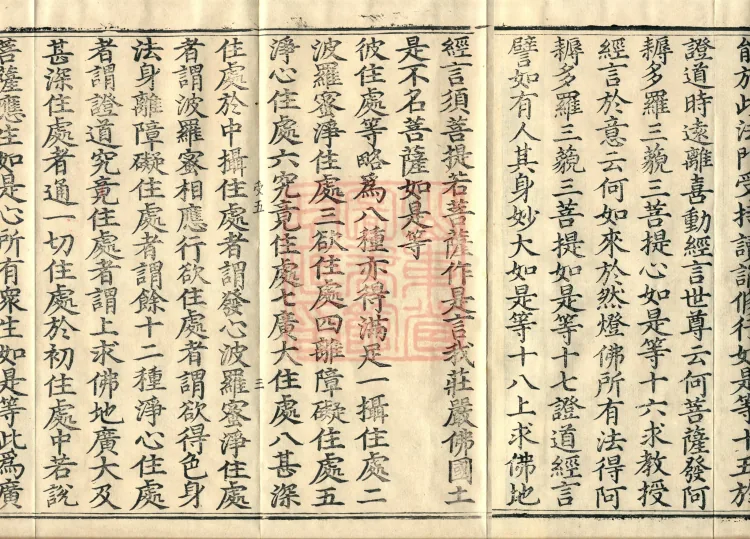 能於此法門受持讀誦修行如是等十五於
證道時遠離喜動經言世尊云何菩薩發阿
耨多羅三藐三菩提心如是等十六求教授
經言於意云何如來於然燈佛所有法得阿
耨多羅三藐三菩提如是等十七證道經言
譬如有人其身妙大如是等十八上求佛地
經言須菩提若菩薩作是言我莊嚴佛國土
是不名菩薩如是等
彼住處等略爲八種亦得滿足一攝住處二
波羅蜜淨住處三欲住處四離障礙住處五
淨心住處六究竟住處七廣大住處八甚深
住處於中攝住處者謂發心波羅蜜淨住處
者謂波羅蜜相應行欲住處者謂欲得色身
法身離障礙住處者謂餘十二種淨心住處
者謂證道究竟住處者謂上求佛地廣大及
甚深住處者通一切住處於初住處中若說
菩薩應生如是心所有衆生如是等此爲廣
三